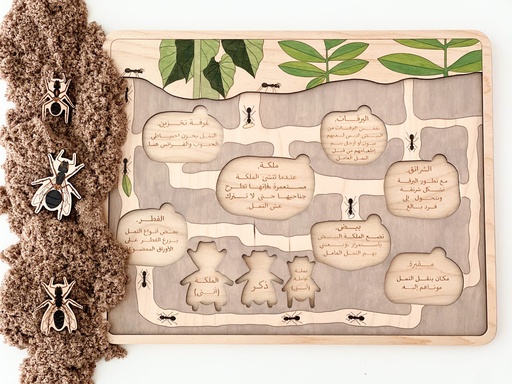 غرفة تخزين.
النمل يخزن احتياطي
الحبوب والفرائس هنا.
اليرقات.
النمل العامل
ملكة.
عندما تنشئ الملكة
مستعمرة فإنها تطرح
جناحيها حتى لا تترك
عش النمل.
الشرانق.
مع تطور اليرقة
تشكل شرنقة
وتتحول إلى
فرد بالغ
الفطر.
بعض أنواع النمل
يزرع الفطر على
الأوراق الممضوغة
بيض.
تضع الملكة البيض
باستمرار ويعتني
بهم النمل العامل
مقبرة.
مكان ينقل النمل
موتاهم إليه
الملكة
(أنثى)
ذكر
نملة
عاملة
(أنثى)